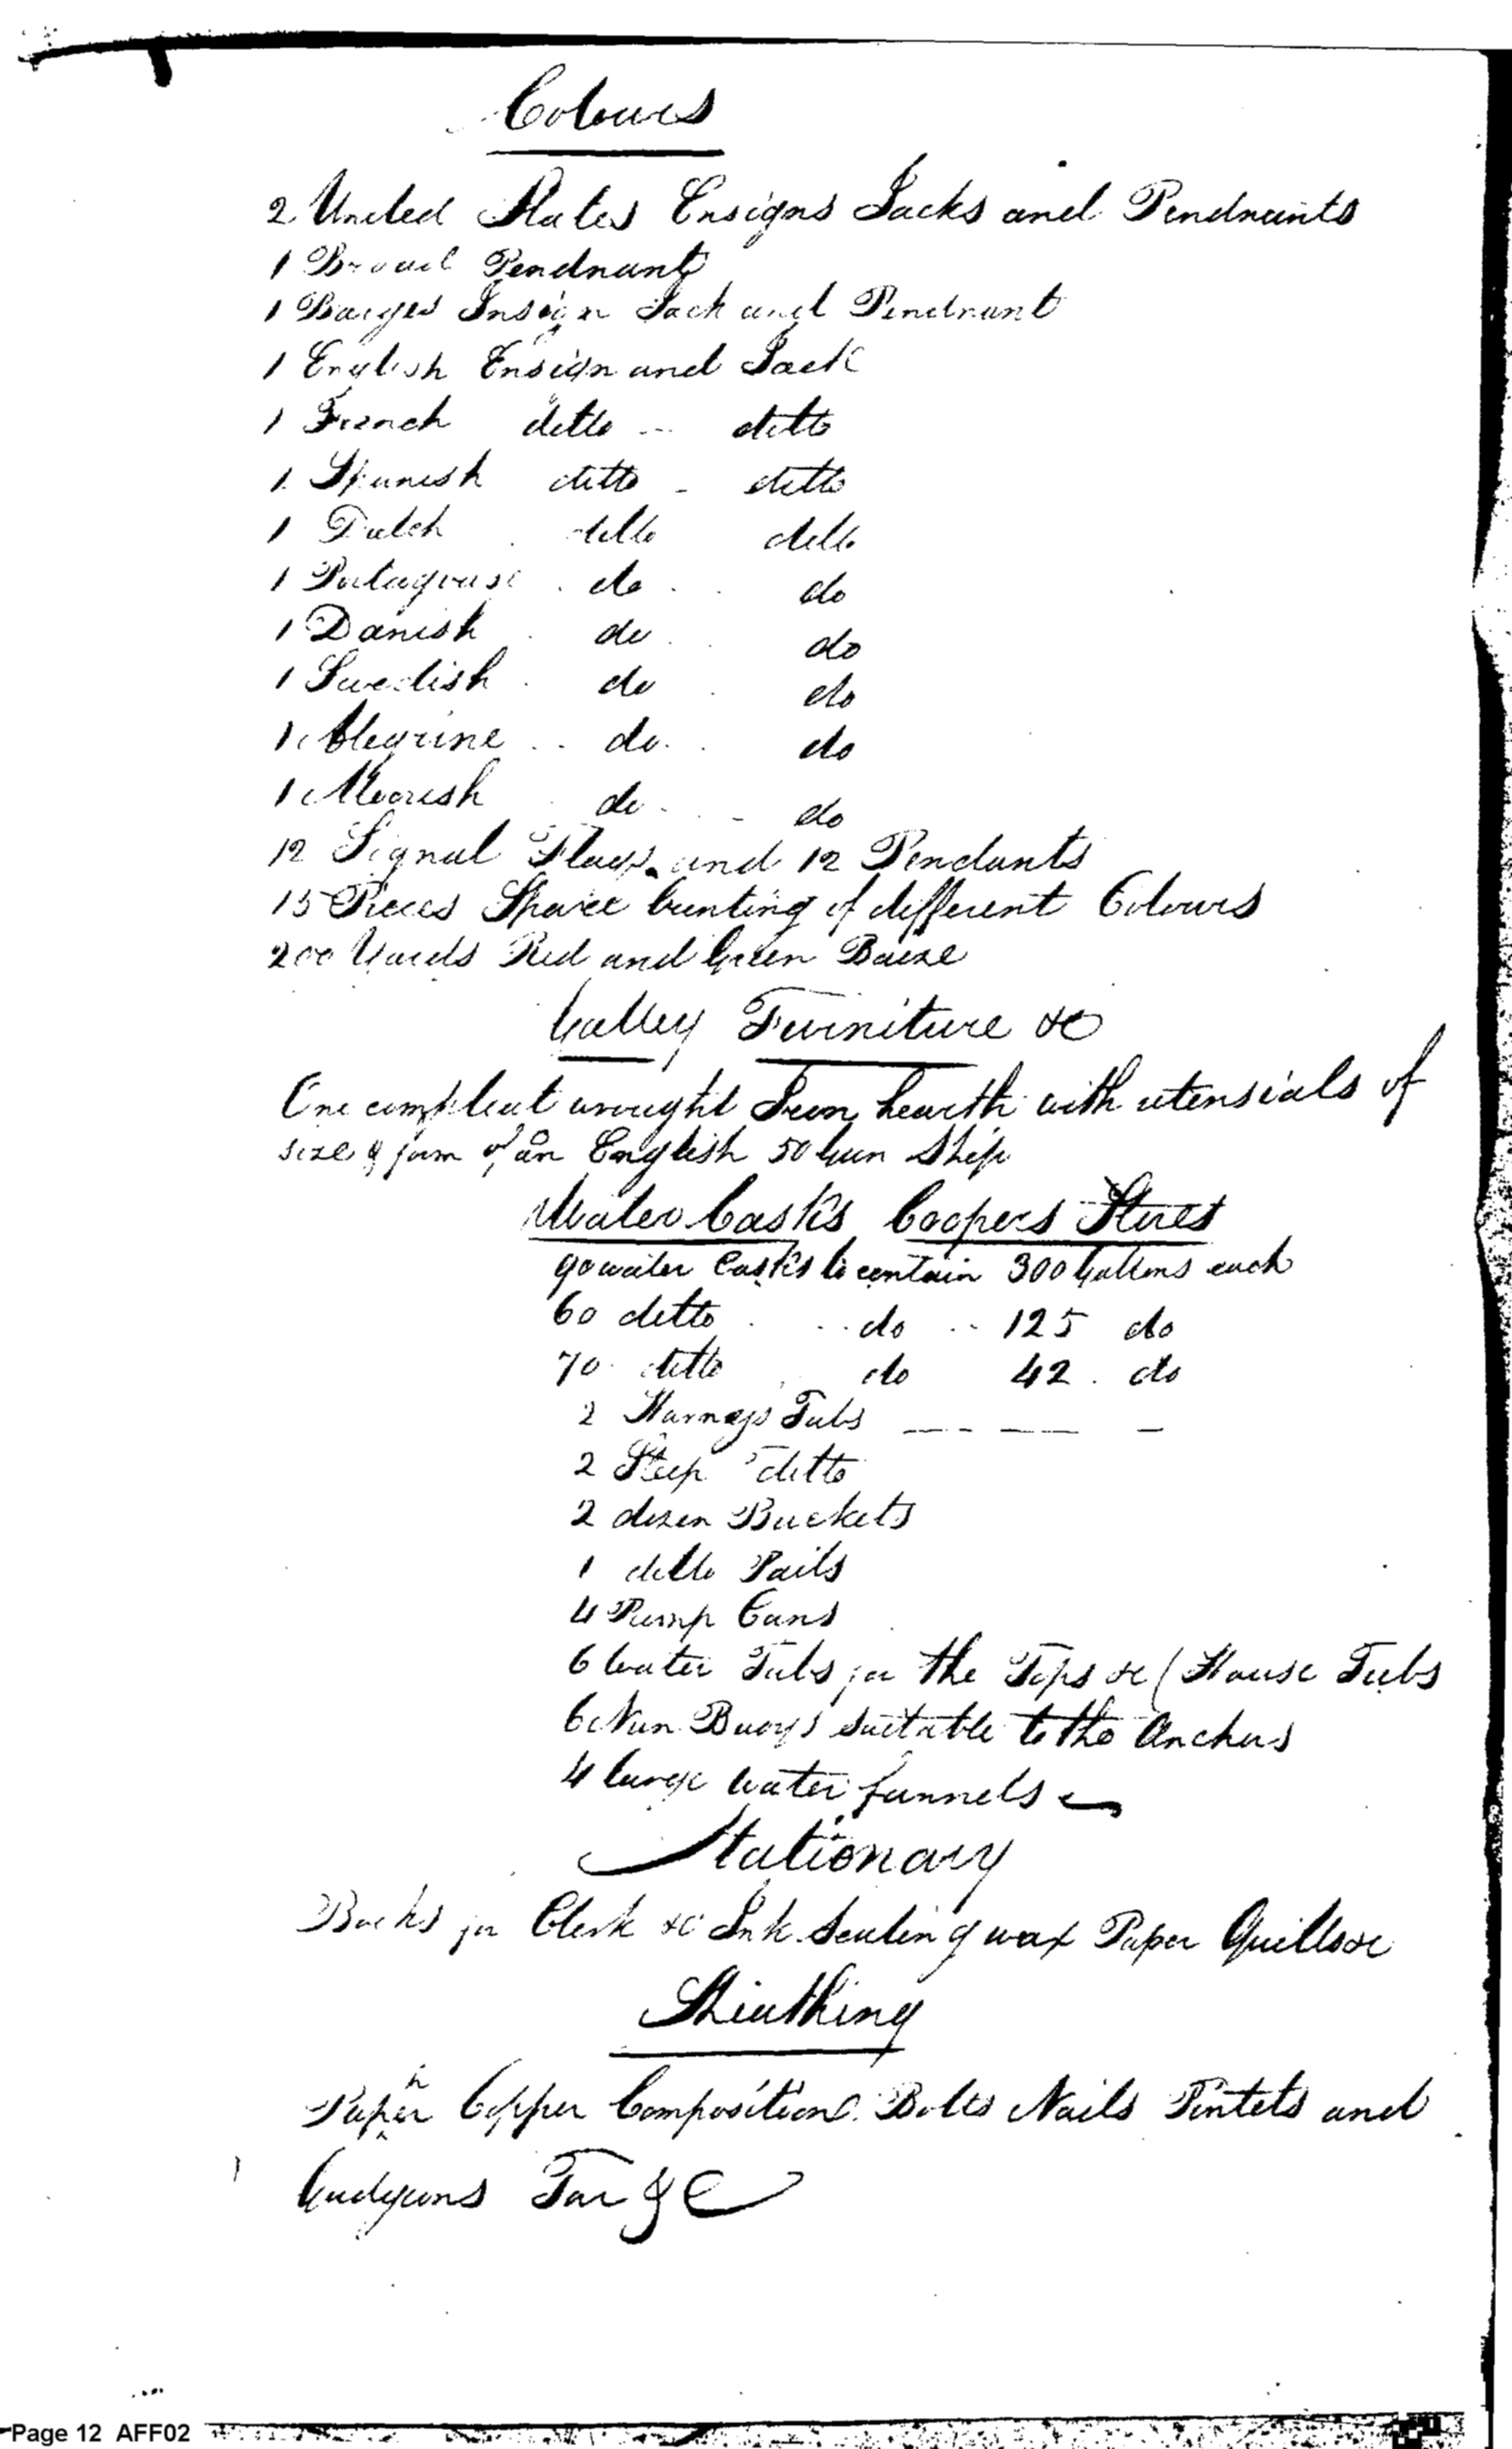 Colours
2 United States Ensigns Jacks and Pendnants
1 Broad Pendnant
1 Barges Insign Jack and Pendnant
1 English Ensign and Jack
1 French ditto -- ditto
1 Spanish ditto - ditto
1 Dutch ditto ditto
1 Portaguese do do
1 Danish do do
1 Swedish do do
1 Alegrine do do
1 Moorish do do
12 Signal Flags and 12 Pendants
15 Pieces Spare bunting of different Colours
200 Yards Red and Green Baize
Galley Furniture &c
One compleat wrought Iron hearth with utensials of
size & form of an English 50 Gun Ship
Water Casks Coopers Stores
90 water Casks to contain 300 Gallons each
60 ditto do 125 do
70 ditto do 42 do
2 Harness Tubs
2 Steep ditto
2 dozen Buckets
1 ditto Pails
4 Pump Cans
6 Water Tubs for the Tops &c (Hause Tubs
6 Nun Buoys suitable to the Anchors
4 large water funnels
Stationary
Books for Clerk &c Ink Sealing wax Paper Quills &c
Sheathing
Paper Copper Composition Bolts Nails Pintets and
Gudgeons Tar &C
Page 12 AFF02